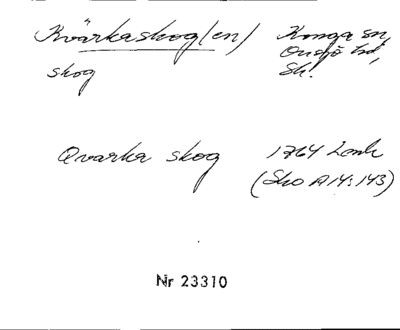 Kvärkaskog(en) Konga sn,
Onsjö hd,
skog Sk!
Qvarka skog 1764 Lantm
(Sko A14:143)
Nr 23310